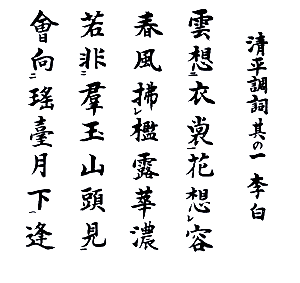 清平調詞其の一 李白
雲想ニ衣裳一花想レ容
春風拂レ檻露華濃
若非ニ羣玉山頭見一
會向ニ瑤臺月下一逢